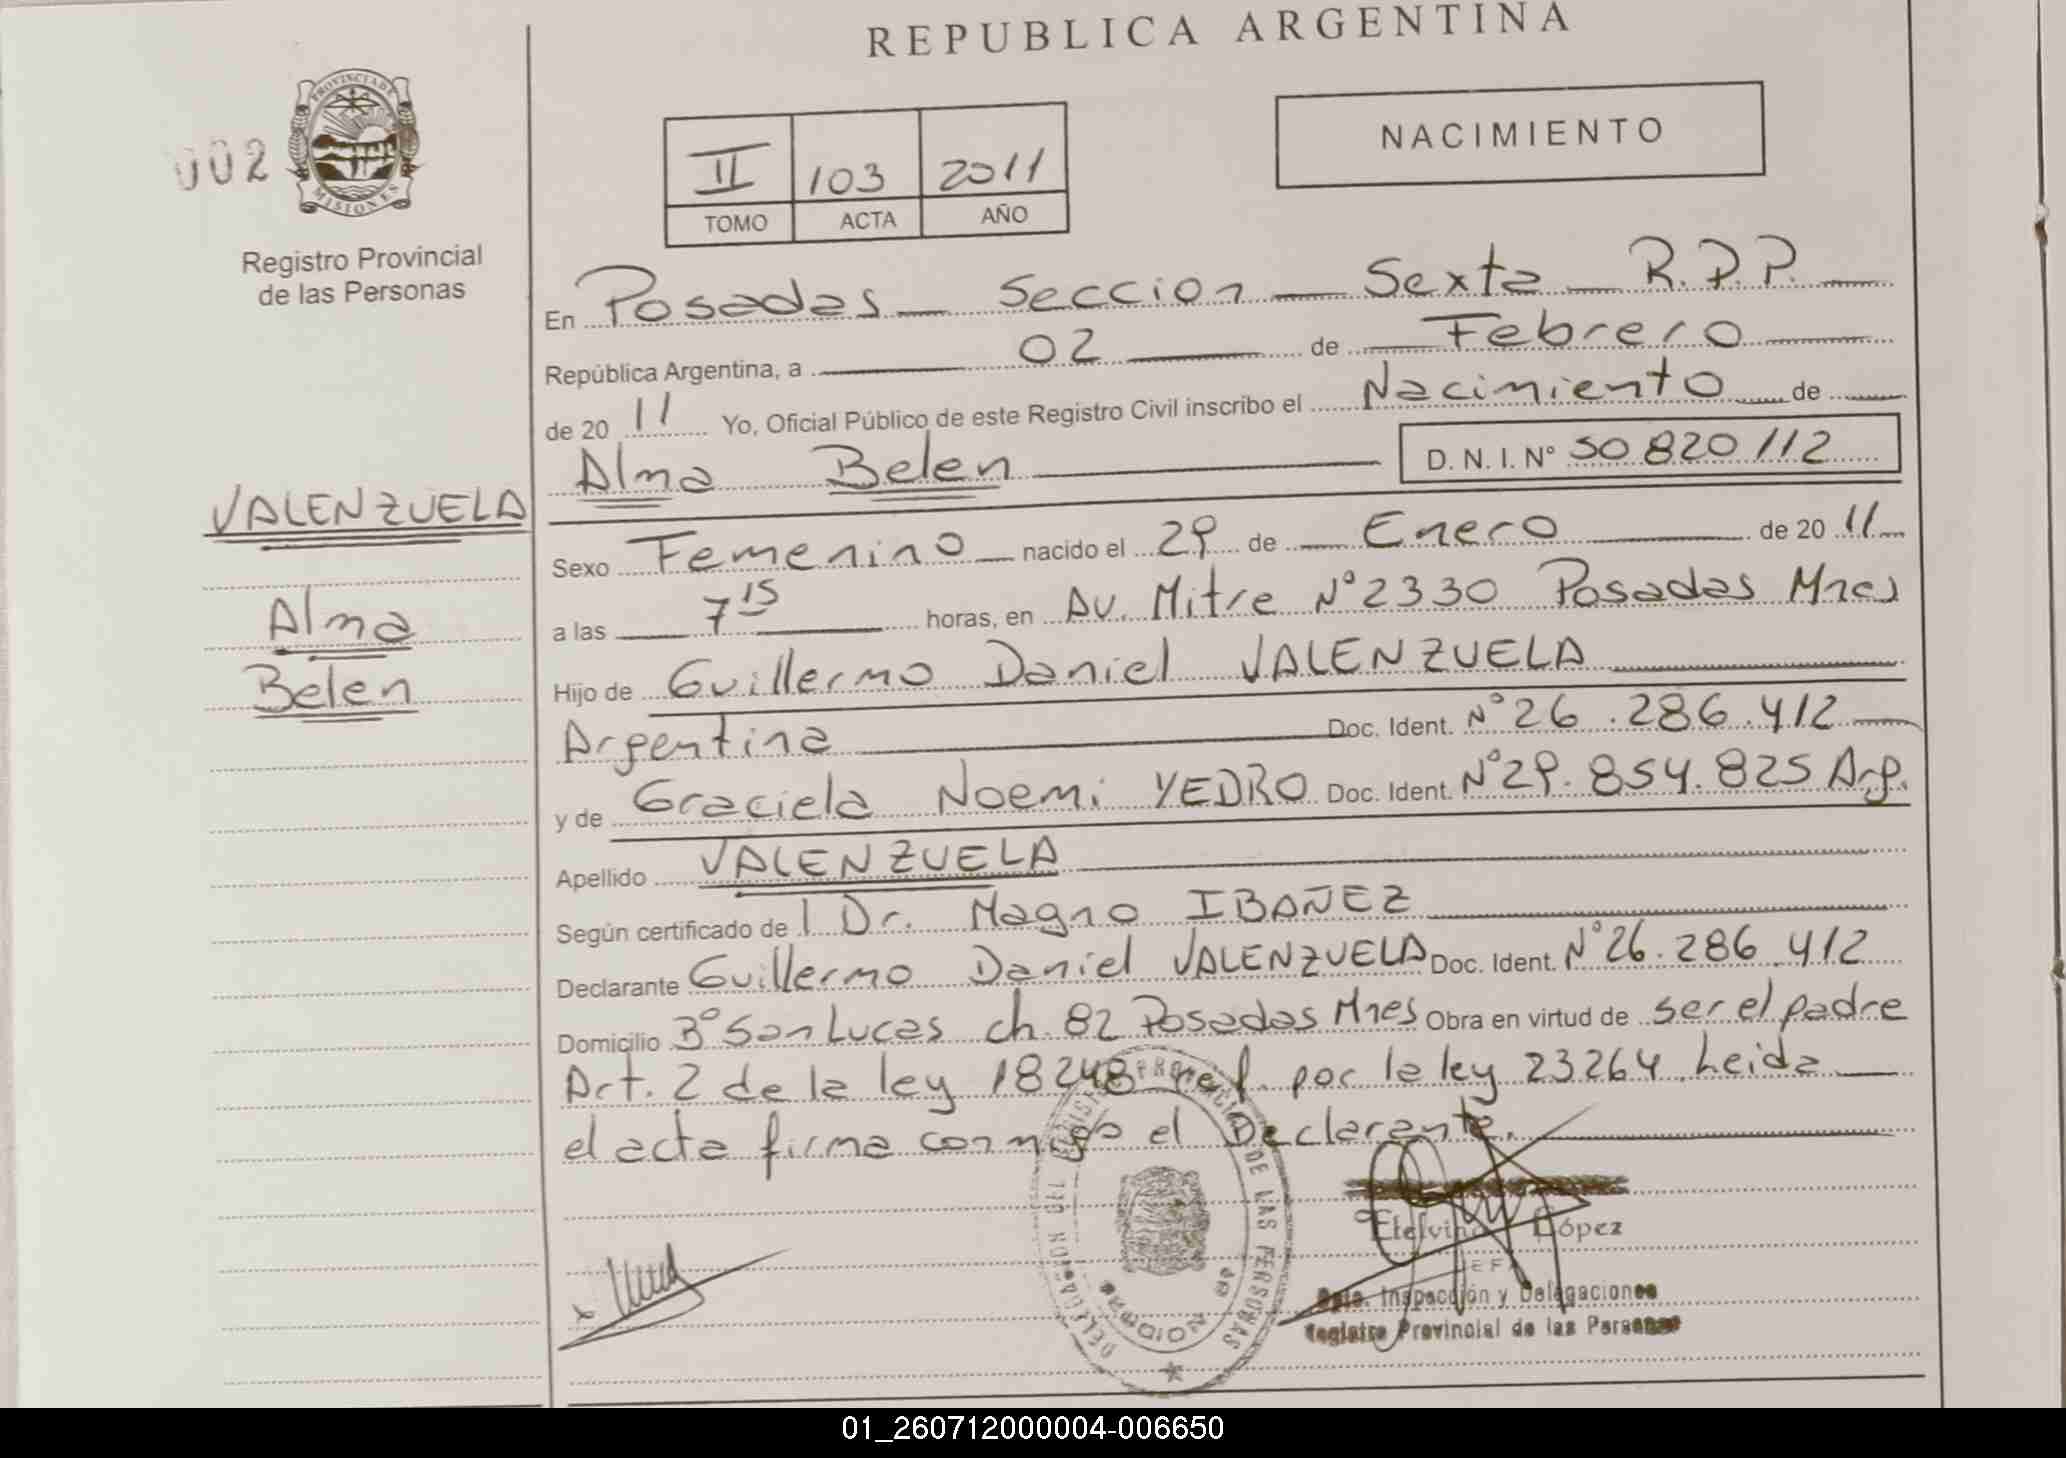 REPUBLICA ARGENTINA
002
PROVINCIA DE
MISIONES
Registro Provincial
de las Personas
II 103 2011
TOMO ACTA AÑO
NACIMIENTO
En Posadas Seccion Sexta R.P.P.
República Argentina, a 02 de Febrero
de 2011 Yo, Oficial Público de este Registro Civil inscribo el Nacimiento de
Alma Belen D. N. I. Nº 50 820 112
VALENZUELA
Alma
Belen
Sexo Femenino nacido el 29 de Enero de 2011
a las 7 15 horas, en Av. Mitre Nº 2330 Posadas Mnes
Hijo de Guillermo Daniel VALENZUELA
Argentina Doc. Ident. Nº 26.286.412
y de Graciela Noemi YEDRO Doc. Ident. Nº 29.854.825 Arg.
Apellido VALENZUELA
Según certificado de l Dr. Magno IBAÑEZ
Declarante Guillermo Daniel VALENZUELA Doc. Ident. Nº 26.286.412
Domicilio Bº San Lucas ch. 82 Posadas Mnes Obra en virtud de ser el padre
Art. 2 de la ley 18248 ref. por la ley 23264. Leida
el acta firma conmigo el Declarante.
Etelvina López
JEFA
Dpto. Inspección y Delegaciones
Registro Provincial de las Personas
PROVINCIAL DE LAS PERSONAS
01_260712000004-006650